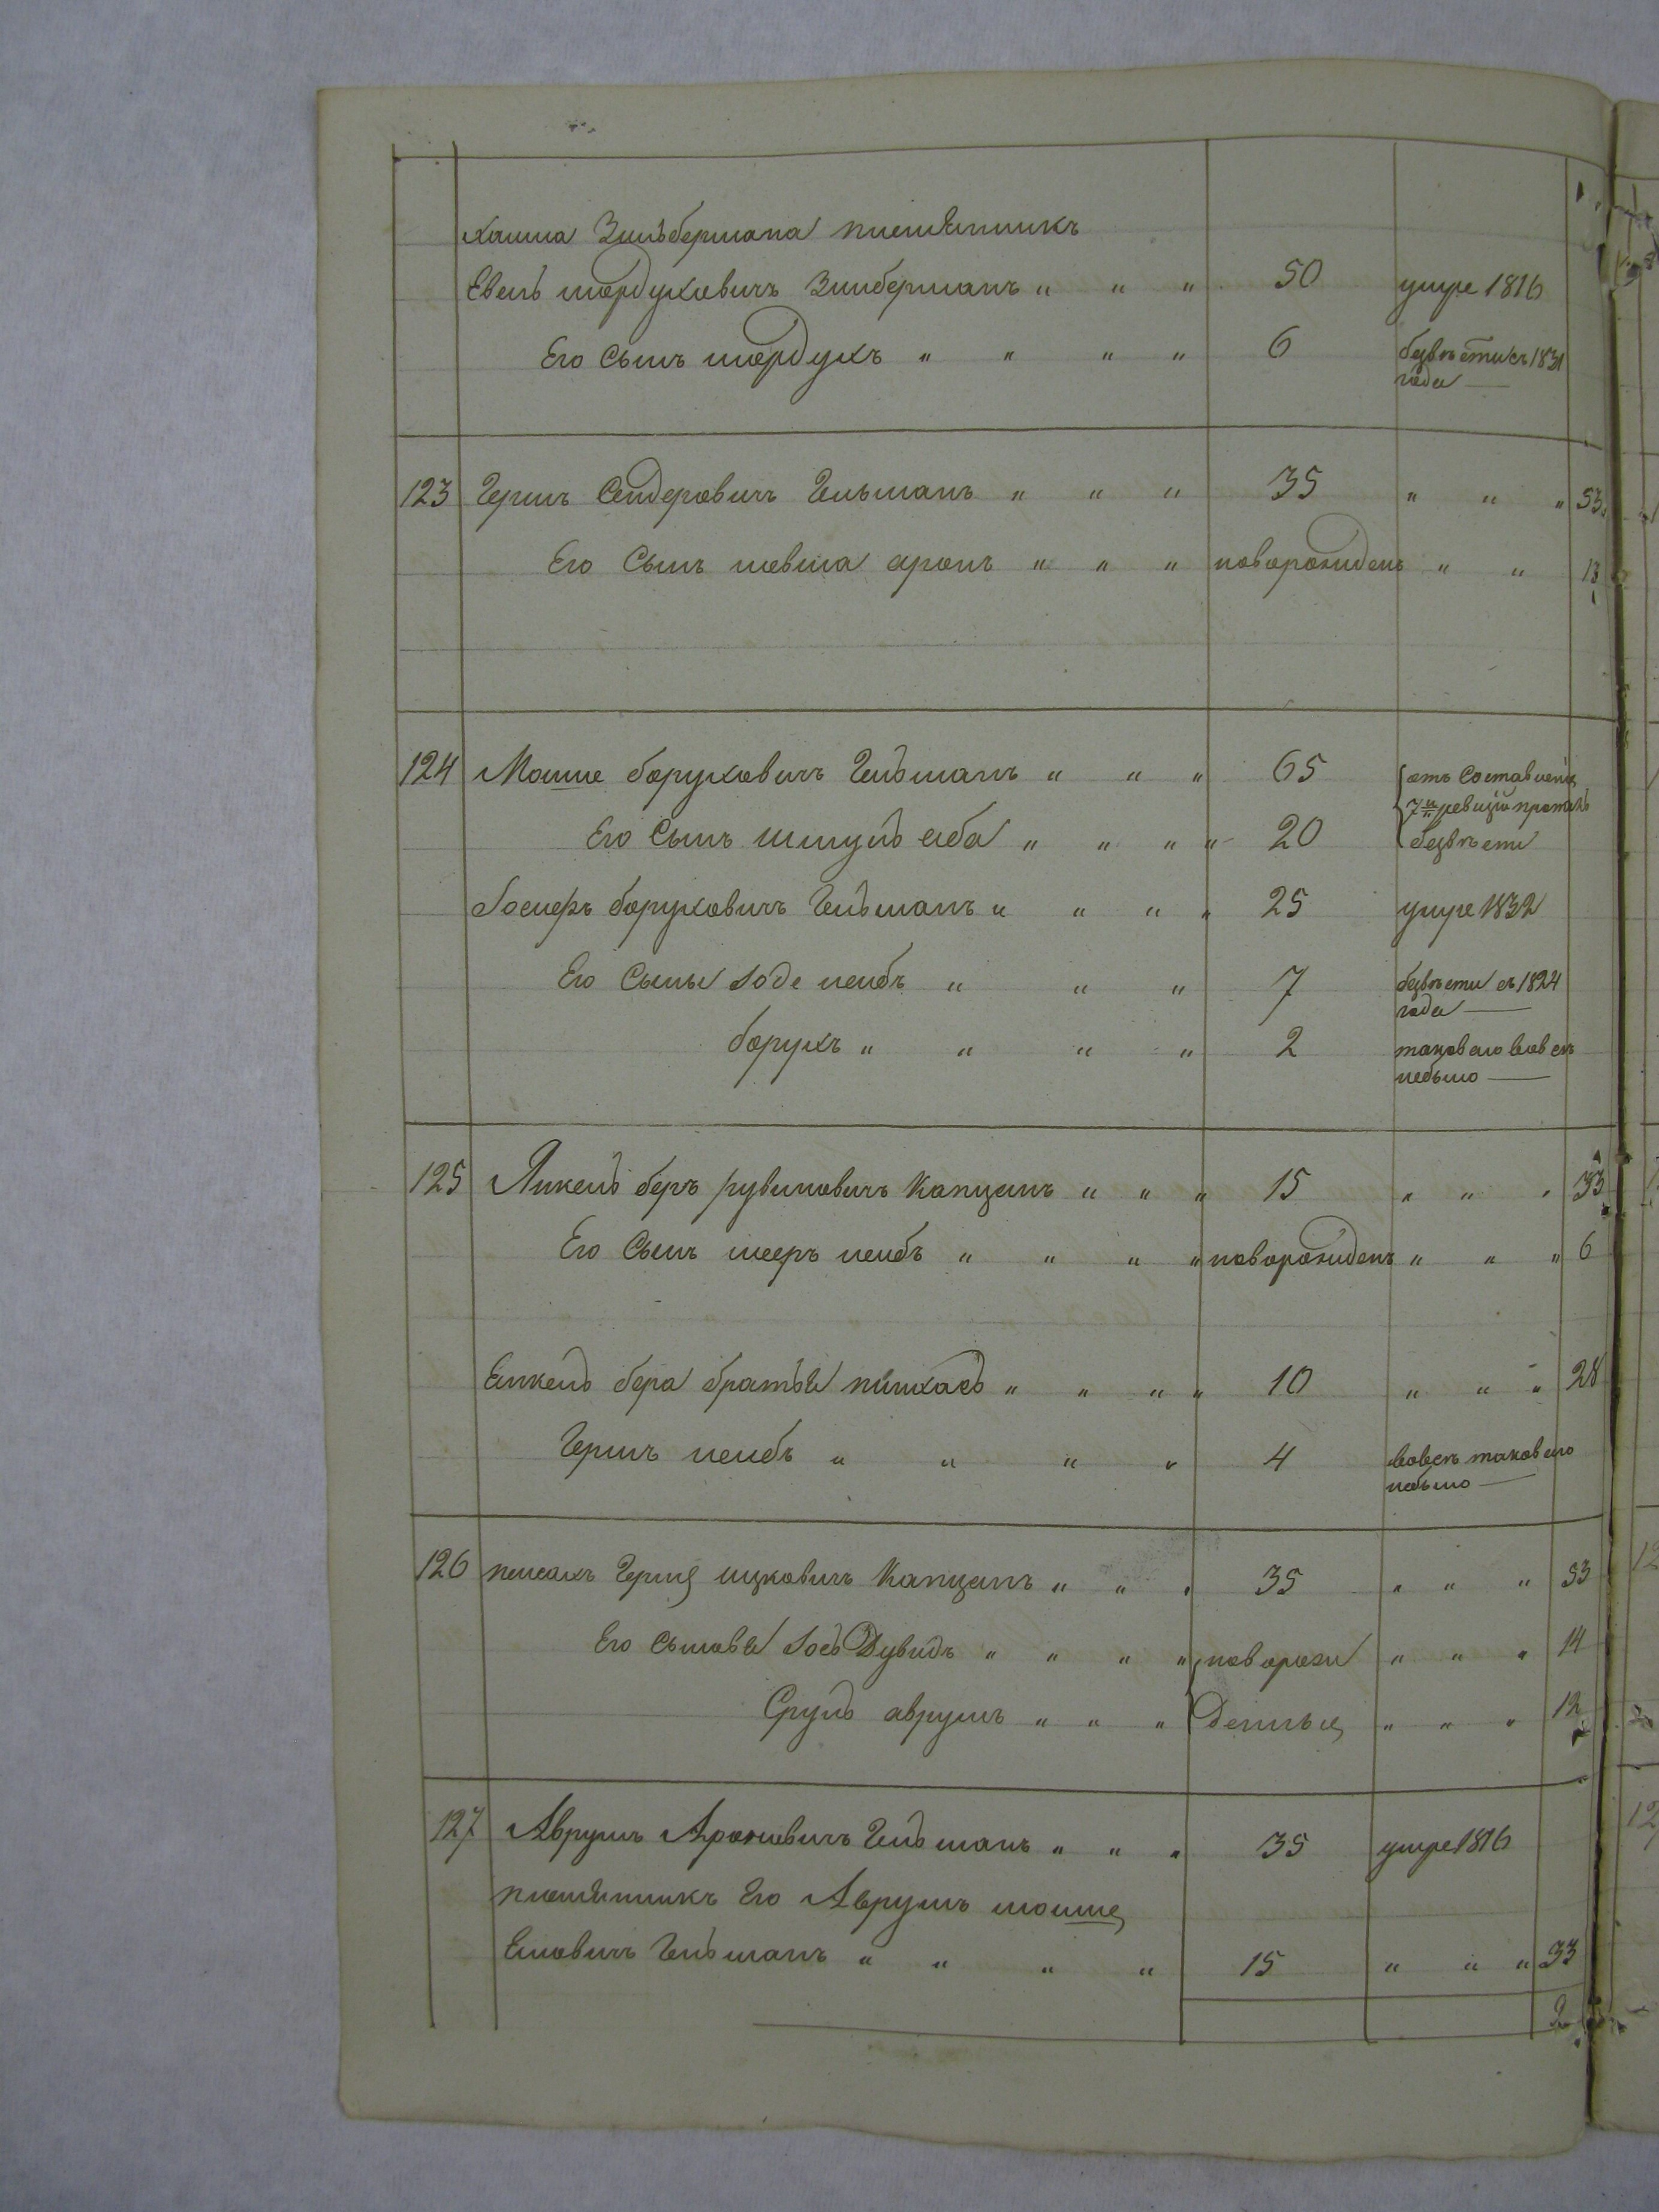 Хаима Зильбермана племянникъ
Евель мордуховичъ Зилберманъ " " " 50 умре 1816
Его Сынъ мордухъ " " " " 6 безвѣсти съ 1831
года —
123 Гершъ Сендеровичъ Гельманъ " " " 35 " " " 53
Его Сынъ мовша аронъ " " " новорожденъ " " 13
124 Мошие борухович Гельманъ " " " 65 отъ Составлені
7й ревизіи пропалъ
Его Сынъ шмуль аба " " " " 20 безвѣсти
Іосифъ боруховичъ Гельманъ " " " " 25 умре 1832
Его Сыны Іоде лейбъ " " " 7 безвѣсти съ 1824
года —
борухъ " " " " 2 таковаго вовсѣ
небыло —
125 Янкель беръ рувиновичъ Капцанъ " " " 15 " " " 33
Его Сынъ мееръ лейбъ " " " " новорожденъ " " " 6
Енкель бера братья пинхасъ " " " " 10 " " " 28
Гершъ лейбъ " " " " 4 вовсѣ таковаго
небыло —
126 пейсахъ Герша ицковичъ Капцанъ " " " 35 " " " 53
Его Сыновья Іось Дувидъ " " " " новорож " " " 14
Сруль аврумъ " " " Деныя " " " 12
127 Аврумъ Ароновичъ Гельманъ " " " 35 умре 1816
племянникъ Его Аврумъ мошие
Еновичъ Гельманъ " " " " 15 " " " 33